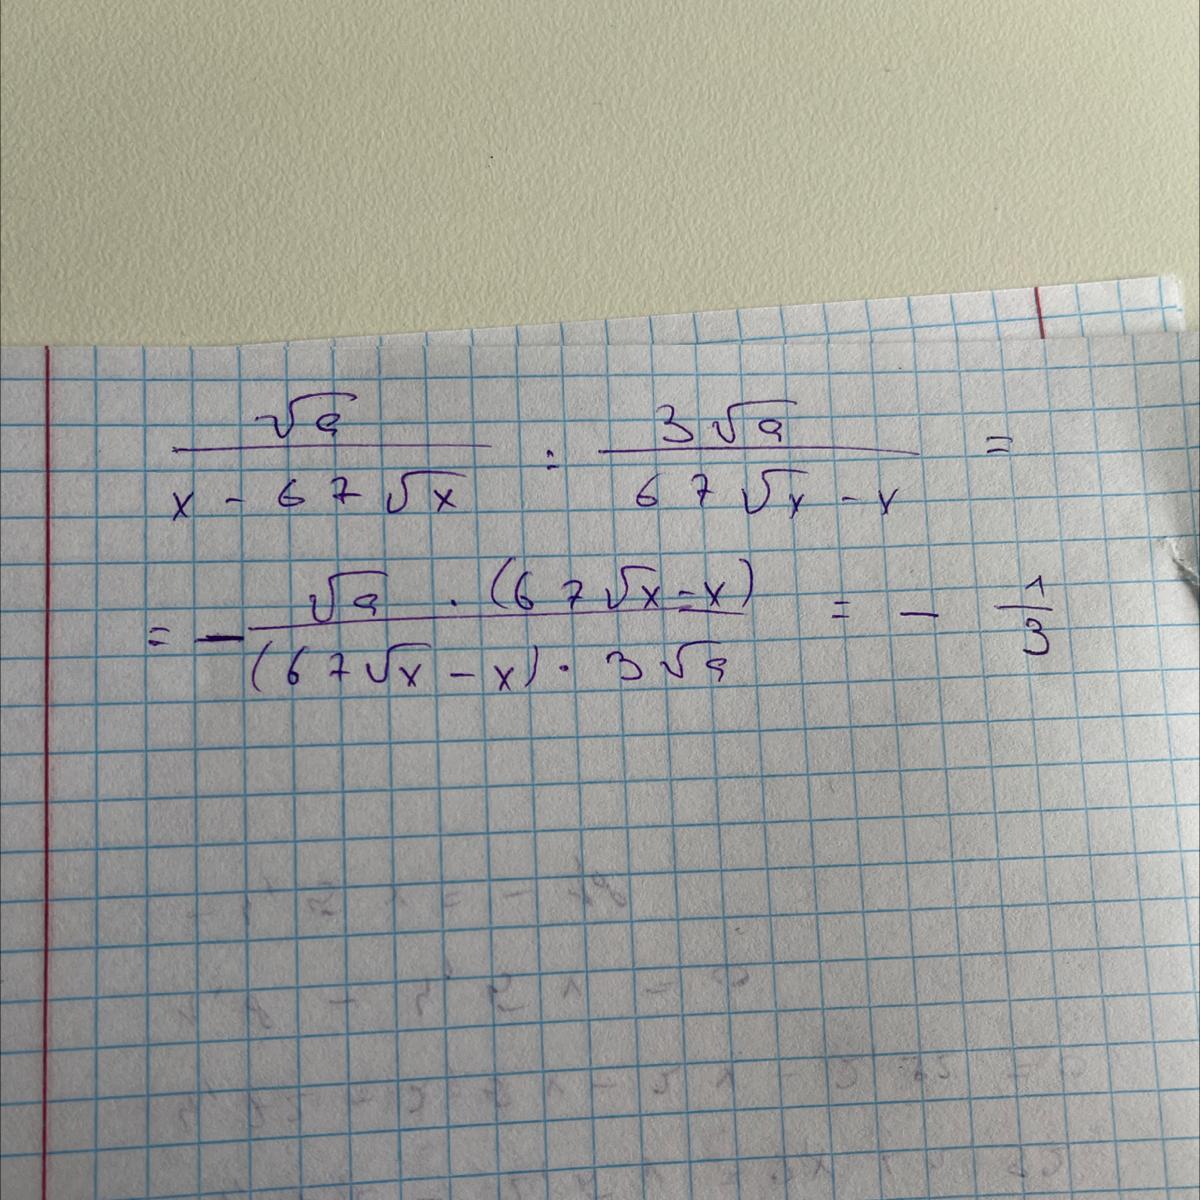 √a / (x - 67√x) : 3√a / (67√x - x) =
= - √a · (67√x - x) / ((67√x - x) · 3√a) = - 1/3